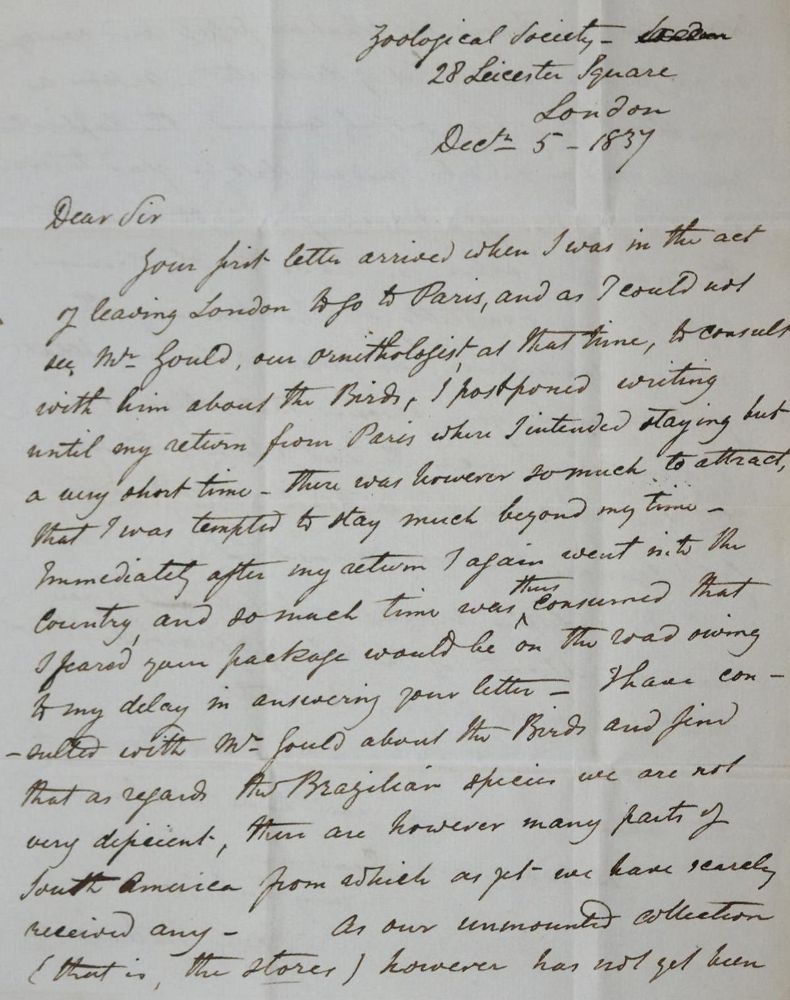 Zoological Society –
28 Leicester Square
London
Decr 5 – 1837
Dear Sir
Your first letter arrived when I was in the act
of leaving London to go to Paris, and as I could not
see Mr Gould, our ornithologist, at that time, to consult
with him about the Birds, I postponed writing
until my return from Paris where I intended staying but
a very short time – there was however so much to attract,
that I was tempted to stay much beyond my time –
Immediately after my return I again went into the
Country, and so much time was thus consumed that
I feared your package would be on the road owing
to my delay in answering your letter – I have con-
-sulted with Mr Gould about the Birds and find
that as regards the Brazilian species we are not
very deficient, there are however many parts of
South America from which as yet we have scarcely
received any – As our unmounted collection
(that is, the stores) however has not yet been